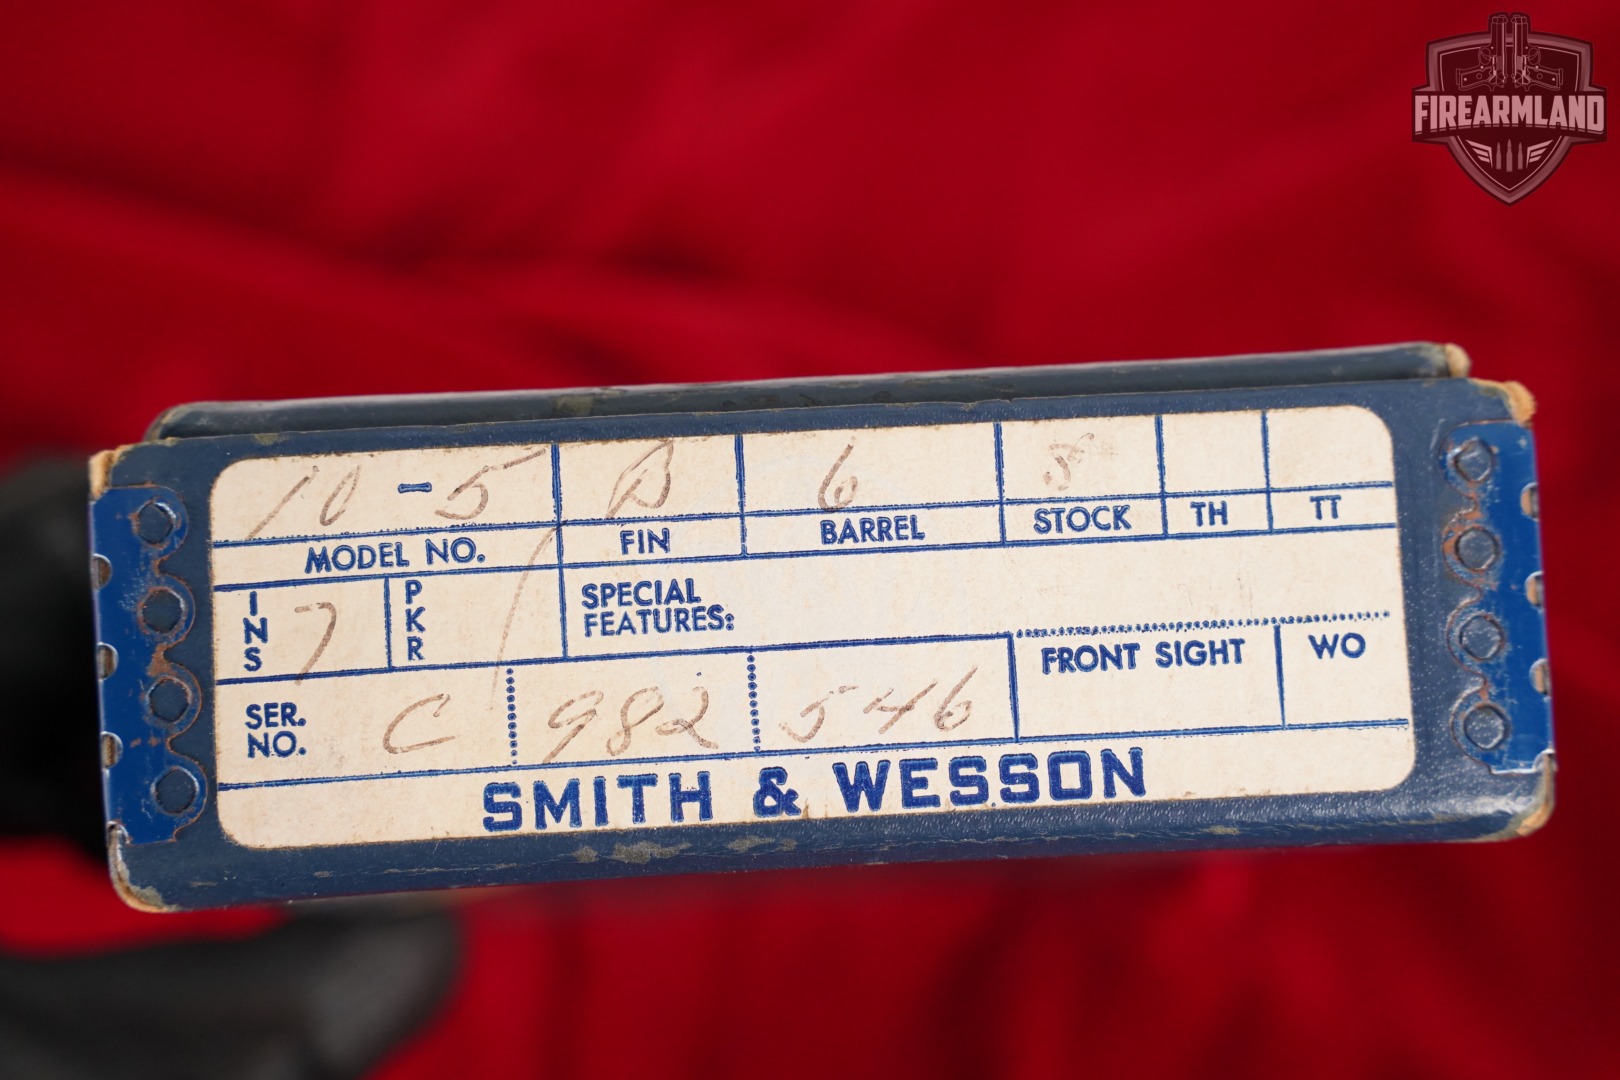 FIREARMLAND
10-5 B 6 S
MODEL NO. FIN BARREL STOCK TH TT
INS 7 PKR SPECIAL
FEATURES:
FRONT SIGHT WO
SER.
NO. C 982 546
SMITH & WESSON